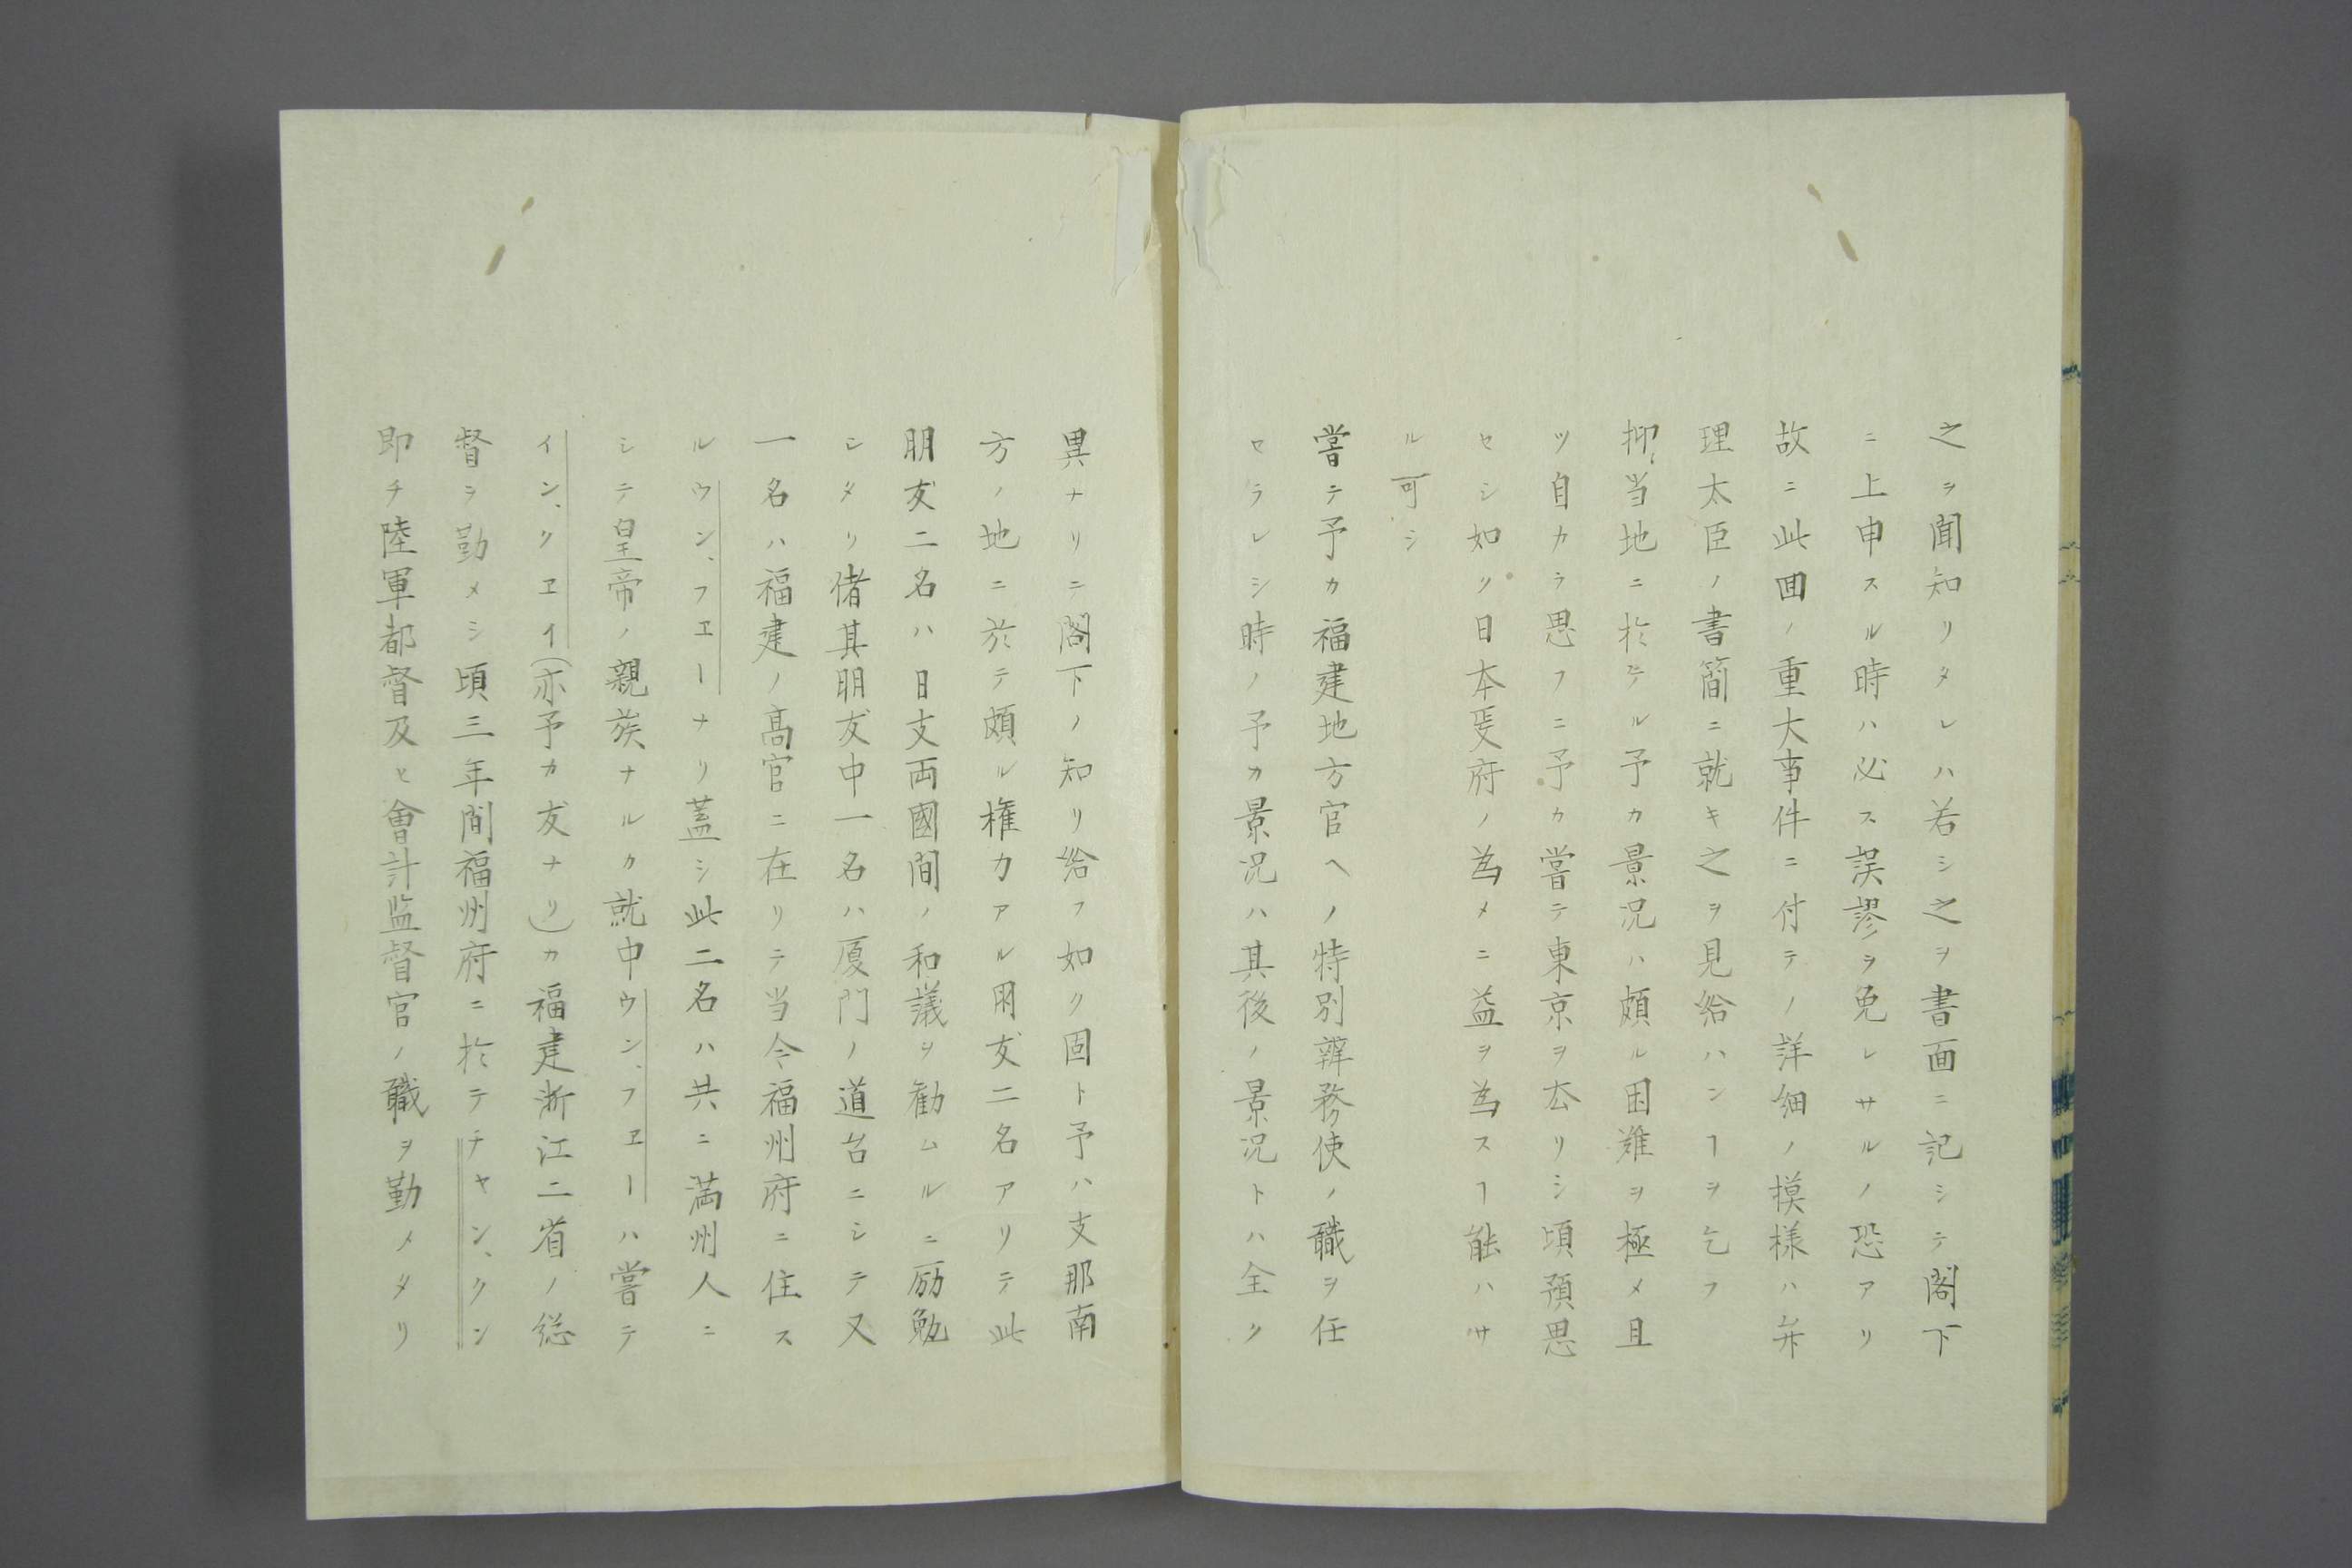 之ヲ聞知リタレハ若シ之ヲ書面ニ記シテ閣下
ニ上申スル時ハ必ス誤謬ヲ免レサルノ恐アリ
故ニ此回ノ重大事件ニ付テノ詳細ノ摸様ハ弁
理太臣ノ書簡ニ就キ之ヲ見給ハンヿヲ乞フ
抑〻当地ニ於テル予カ景況ハ頗ル困難ヲ極メ且
ツ自カラ思フニ予カ嘗テ東京ヲ去リシ頃預思
セシ如ク日本政府ノ為メニ益ヲ為スヿ能ハサ
ル可シ
嘗テ予カ福建地方官ヘノ特別辨務使ノ職ヲ任
セラレシ時ノ予カ景況ハ其後ノ景況トハ全ク
異ナリニ閣下ノ知リ給フ如ク固ト予ハ支那南
方ノ地ニ於テ頗ル権力アル朋友二名アリテ此
朋友二名ハ日支両國間ノ和議ヲ勧ムルニ励勉
シタリ偖其朋友中一名ハ厦門ノ道台ニシテ又
一名ハ福建ノ高官ニ在リテ当今福州府ニ住ス
ルウン、フヱーナリ蓋シ此二名ハ共ニ満州人ニ
シテ皇帝ノ親族ナルカ就中ウン、フヱーハ嘗テ
イン、クヱイ(亦予カ友ナリ)カ福建浙江二省ノ総
督ヲ勤メシ頃三年間福州府ニ於テチヤン、クン
即チ陸軍都督及ヒ會計監督官ノ職ヲ勤メタリ